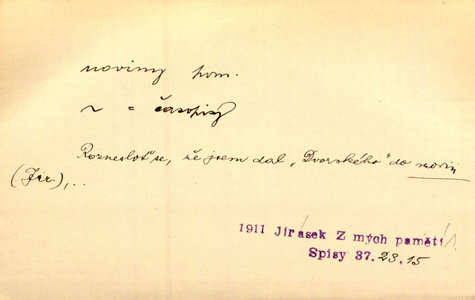 noviny hom.
~ = časopisy
Roznesloť se, že jsem dal „Dvorského" do novin
(Jir.), ..
1911 Jirásek Z mých pamětí 1.
Spisy 37. 23, 15